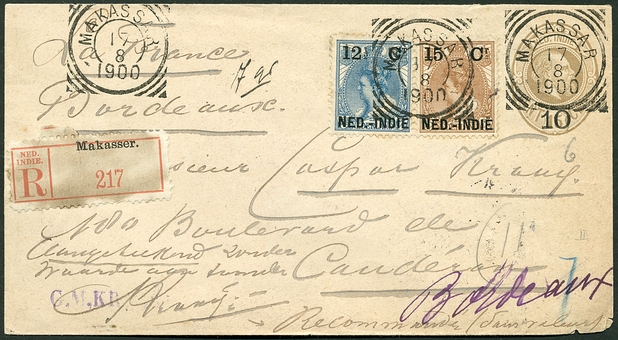 MAKASSAR
17
8
1900
MAKASSAR
8
1900
MAKASSAR
17
8
1900
12½ Ct
NED.-INDIË
15 Ct
NED.-INDIË
10
La France
Bordeaux.
NED.
INDIE.
R
Makasser.
217
Monsieur Caspar Krany.
6
180 Boulevard de
Caudéran
Aangeteekend zonder
waarde
G.M.KR
Bordeaux
France
Recommandé